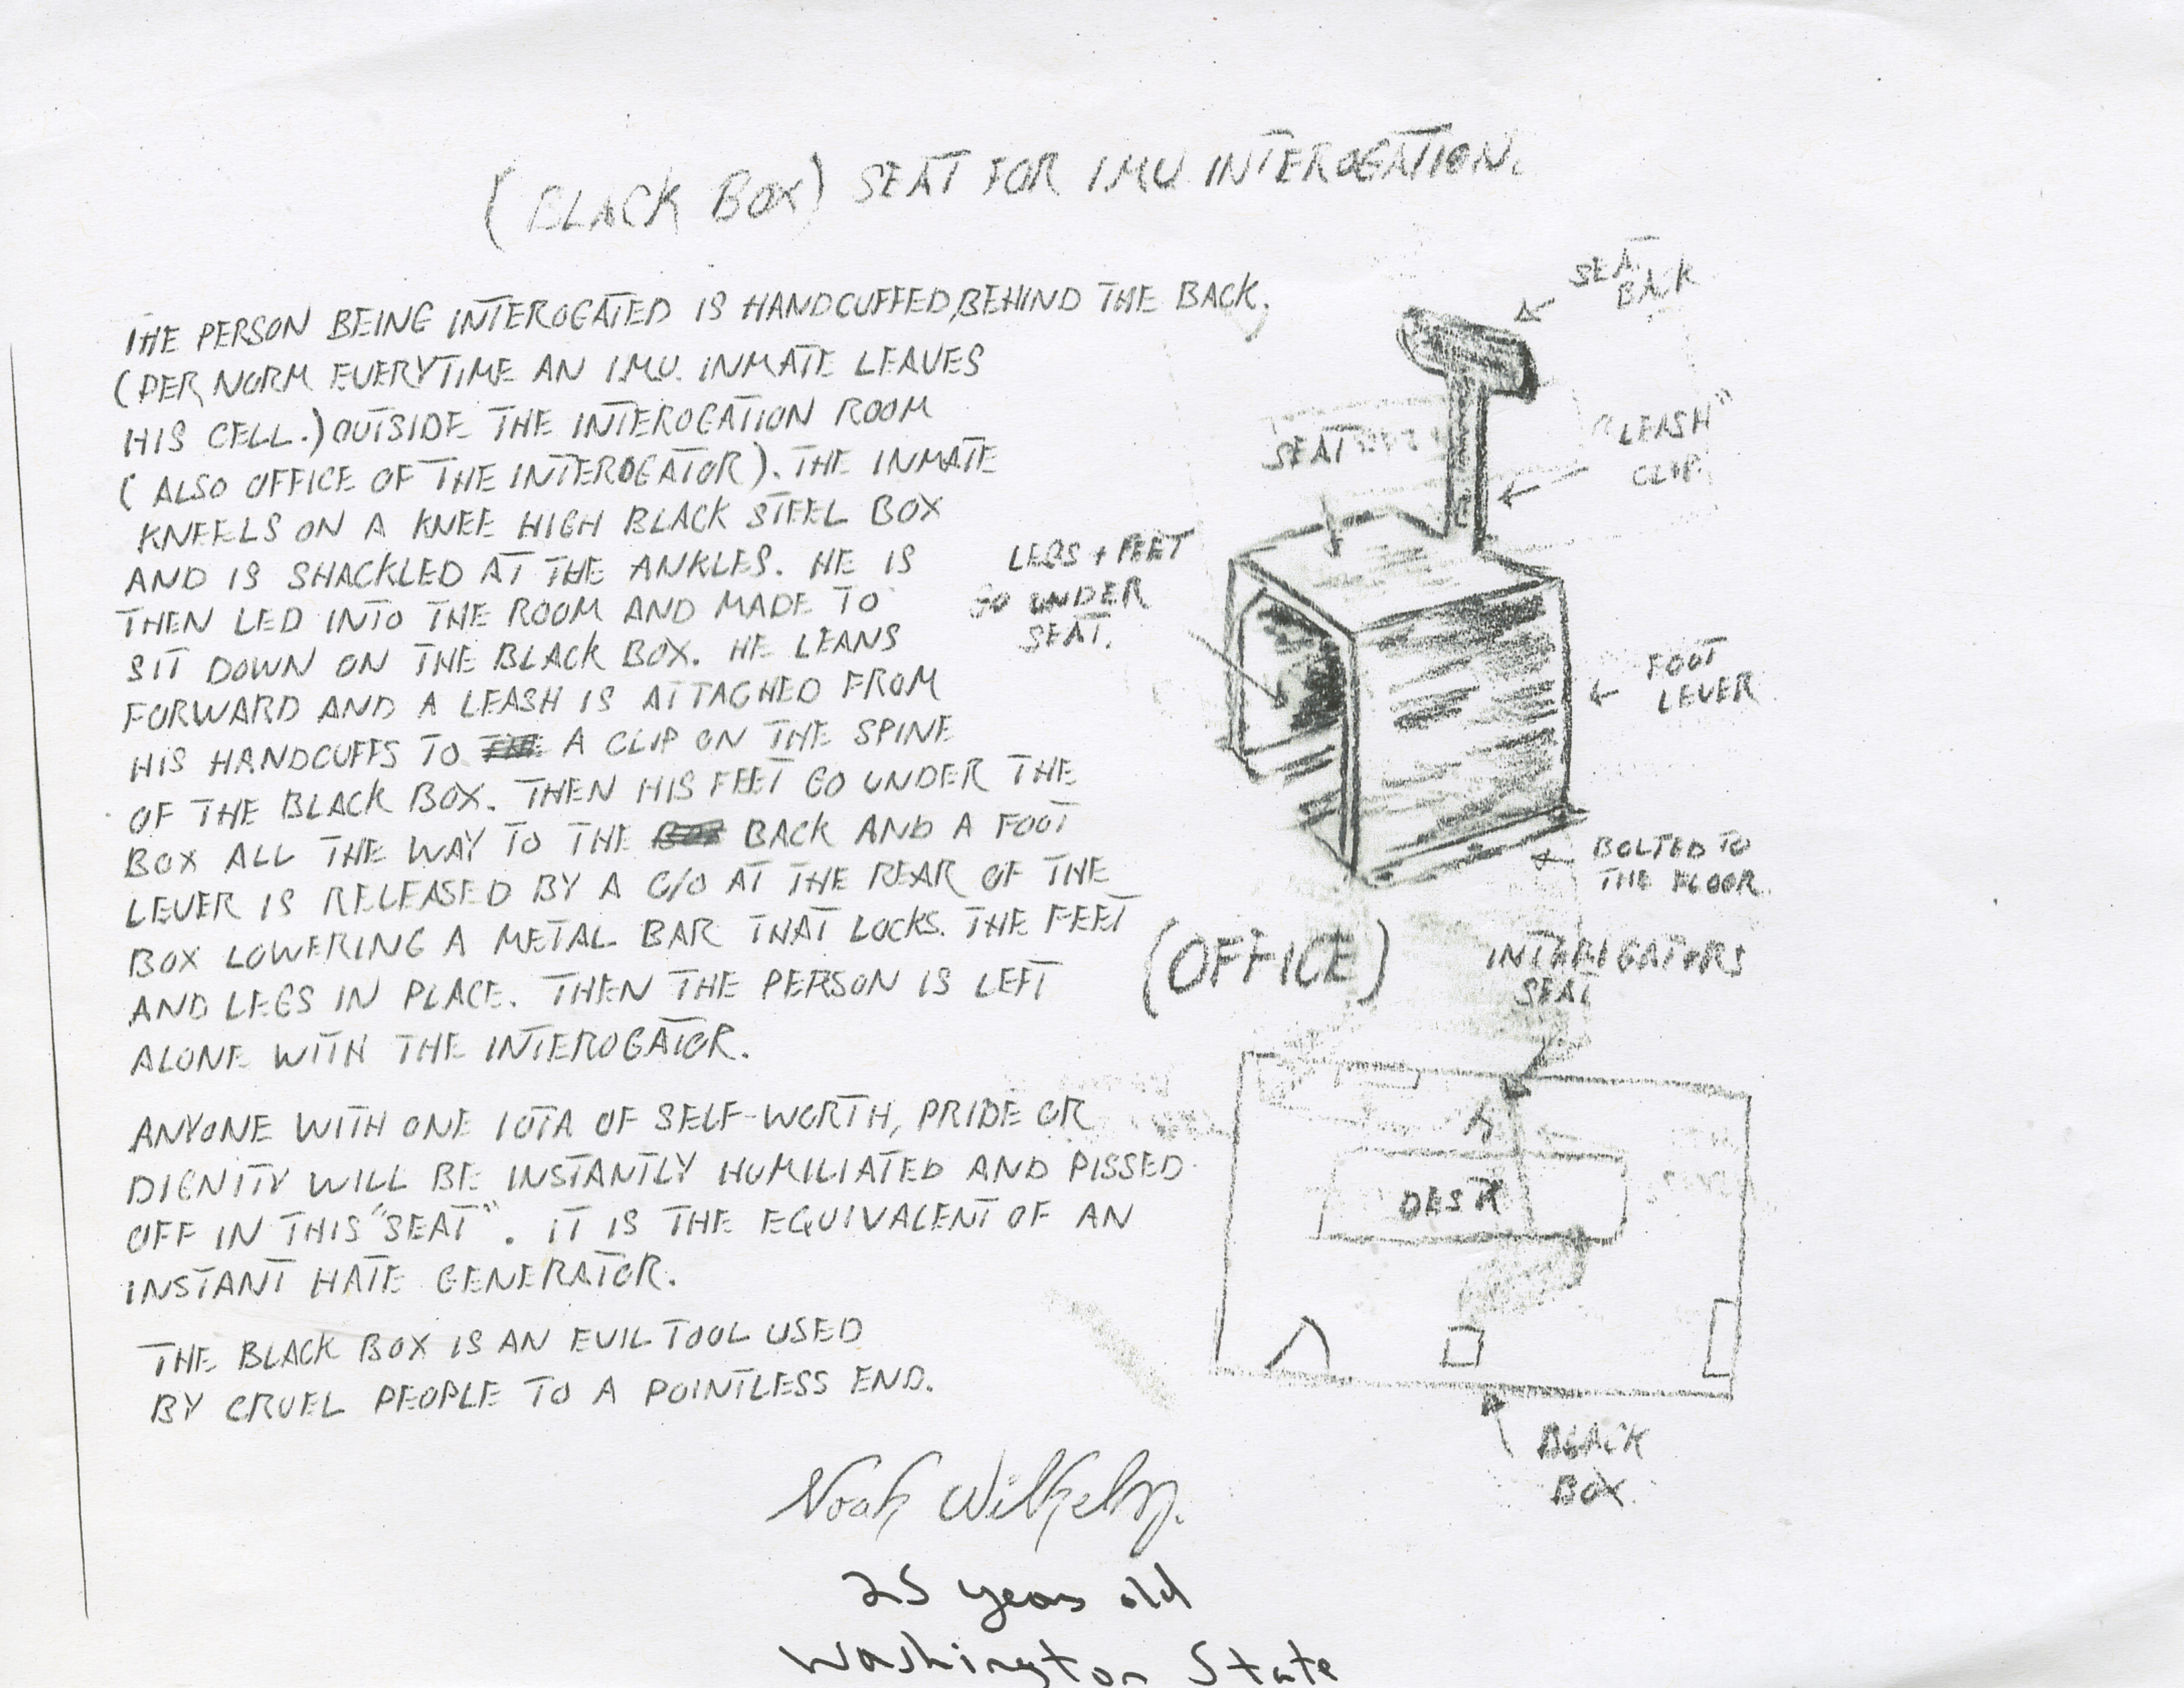 (BLACK BOX) SEAT FOR I.M.U INTEROGATION.
THE PERSON BEING INTEROGATED IS HANDCUFFED, BEHIND THE BACK,
(PER NORM EVERYTIME AN I.M.U. INMATE LEAVES
HIS CELL.) OUTSIDE THE INTEROGATION ROOM
(ALSO OFFICE OF THE INTEROGATOR). THE INMATE
KNEELS ON A KNEE HIGH BLACK STEEL BOX
AND IS SHACKLED AT THE ANKLES. HE IS
THEN LED INTO THE ROOM AND MADE TO
SIT DOWN ON THE BLACK BOX. HE LEANS
FORWARD AND A LEASH IS ATTACHED FROM
HIS HANDCUFFS TO A CLIP ON THE SPINE
OF THE BLACK BOX. THEN HIS FEET GO UNDER THE
BOX ALL THE WAY TO THE BACK AND A FOOT
LEVER IS RELEASED BY A C/O AT THE REAR OF THE
BOX LOWERING A METAL BAR THAT LOCKS. THE FEET
AND LEGS IN PLACE. THEN THE PERSON IS LEFT
ALONE WITH THE INTEROGATOR.
ANYONE WITH ONE IOTA OF SELF-WORTH, PRIDE OR
DIGNITY WILL BE INSTANTLY HUMILIATED AND PISSED
OFF IN THIS "SEAT". IT IS THE EQUIVALENT OF AN
INSTANT HATE GENERATOR.
THE BLACK BOX IS AN EVIL TOOL USED
BY CRUEL PEOPLE TO A POINTLESS END.
Noah Wilhelm.
25 years old
Washington State
SEAT
BACK
"LEASH"
CLIP
SEAT
LEGS + FEET
GO UNDER
SEAT.
FOOT
LEVER
BOLTED TO
THE FLOOR
(OFFICE)
INTERIGATORS
SEAT
DESK
BLACK
BOX.